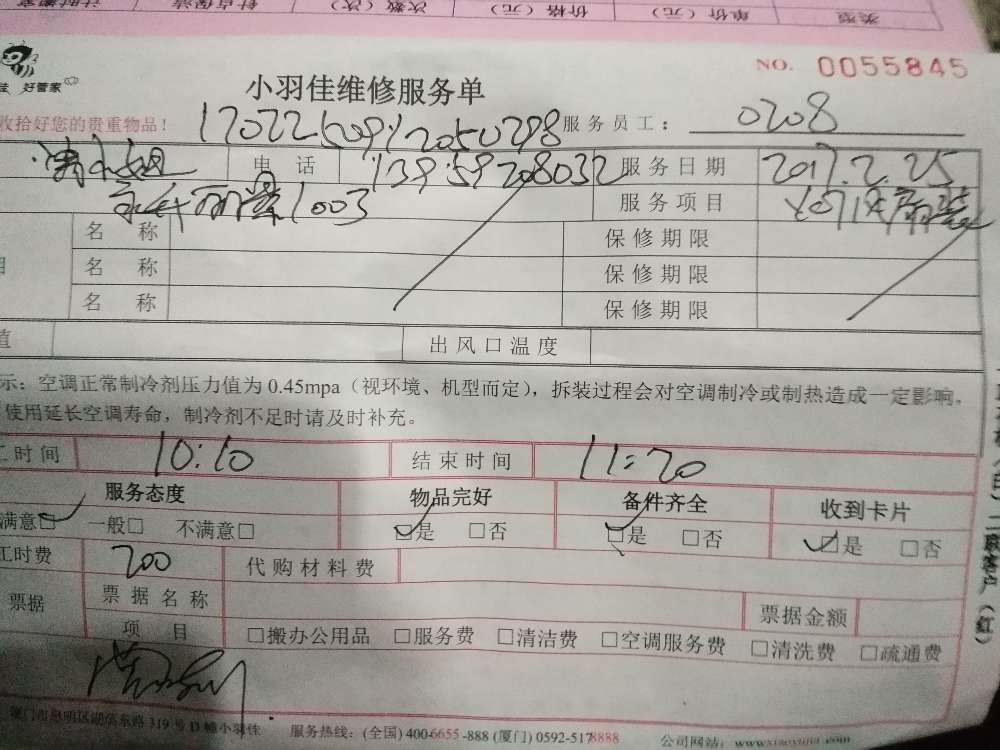 类型 单价（元） 价格（元） 次数（次）
NO. 0055845
好管家
小羽佳维修服务单
收拾好您的贵重物品！ 1702250912050298 服务员工： 0208
小姐 电话 13959208032 服务日期 2017.2.25
1003 服务项目
名称 保修期限
名称 保修期限
名称 保修期限
值 出风口温度
示：空调正常制冷剂压力值为0.45mpa（视环境、机型而定），拆装过程会对空调制冷或制热造成一定影响，
使用延长空调寿命，制冷剂不足时请及时补充。
工时间 10:10 结束时间 11:20
服务态度 物品完好 备件齐全 收到卡片
满意□ 一般□ 不满意□ □是 □否 □是 □否 □是 □否
工时费 200 代购材料费
票据 票据名称 票据金额
项目 □搬办公用品 □服务费 □清洁费 □空调服务费 □清洗费 □疏通费
厦门市思明区湖滨东路319号D幢小羽佳 服务热线：（全国）400-6655-888（厦门）0592-5178888 公司网站：www.xiaoyujia.com
二联客户（红）